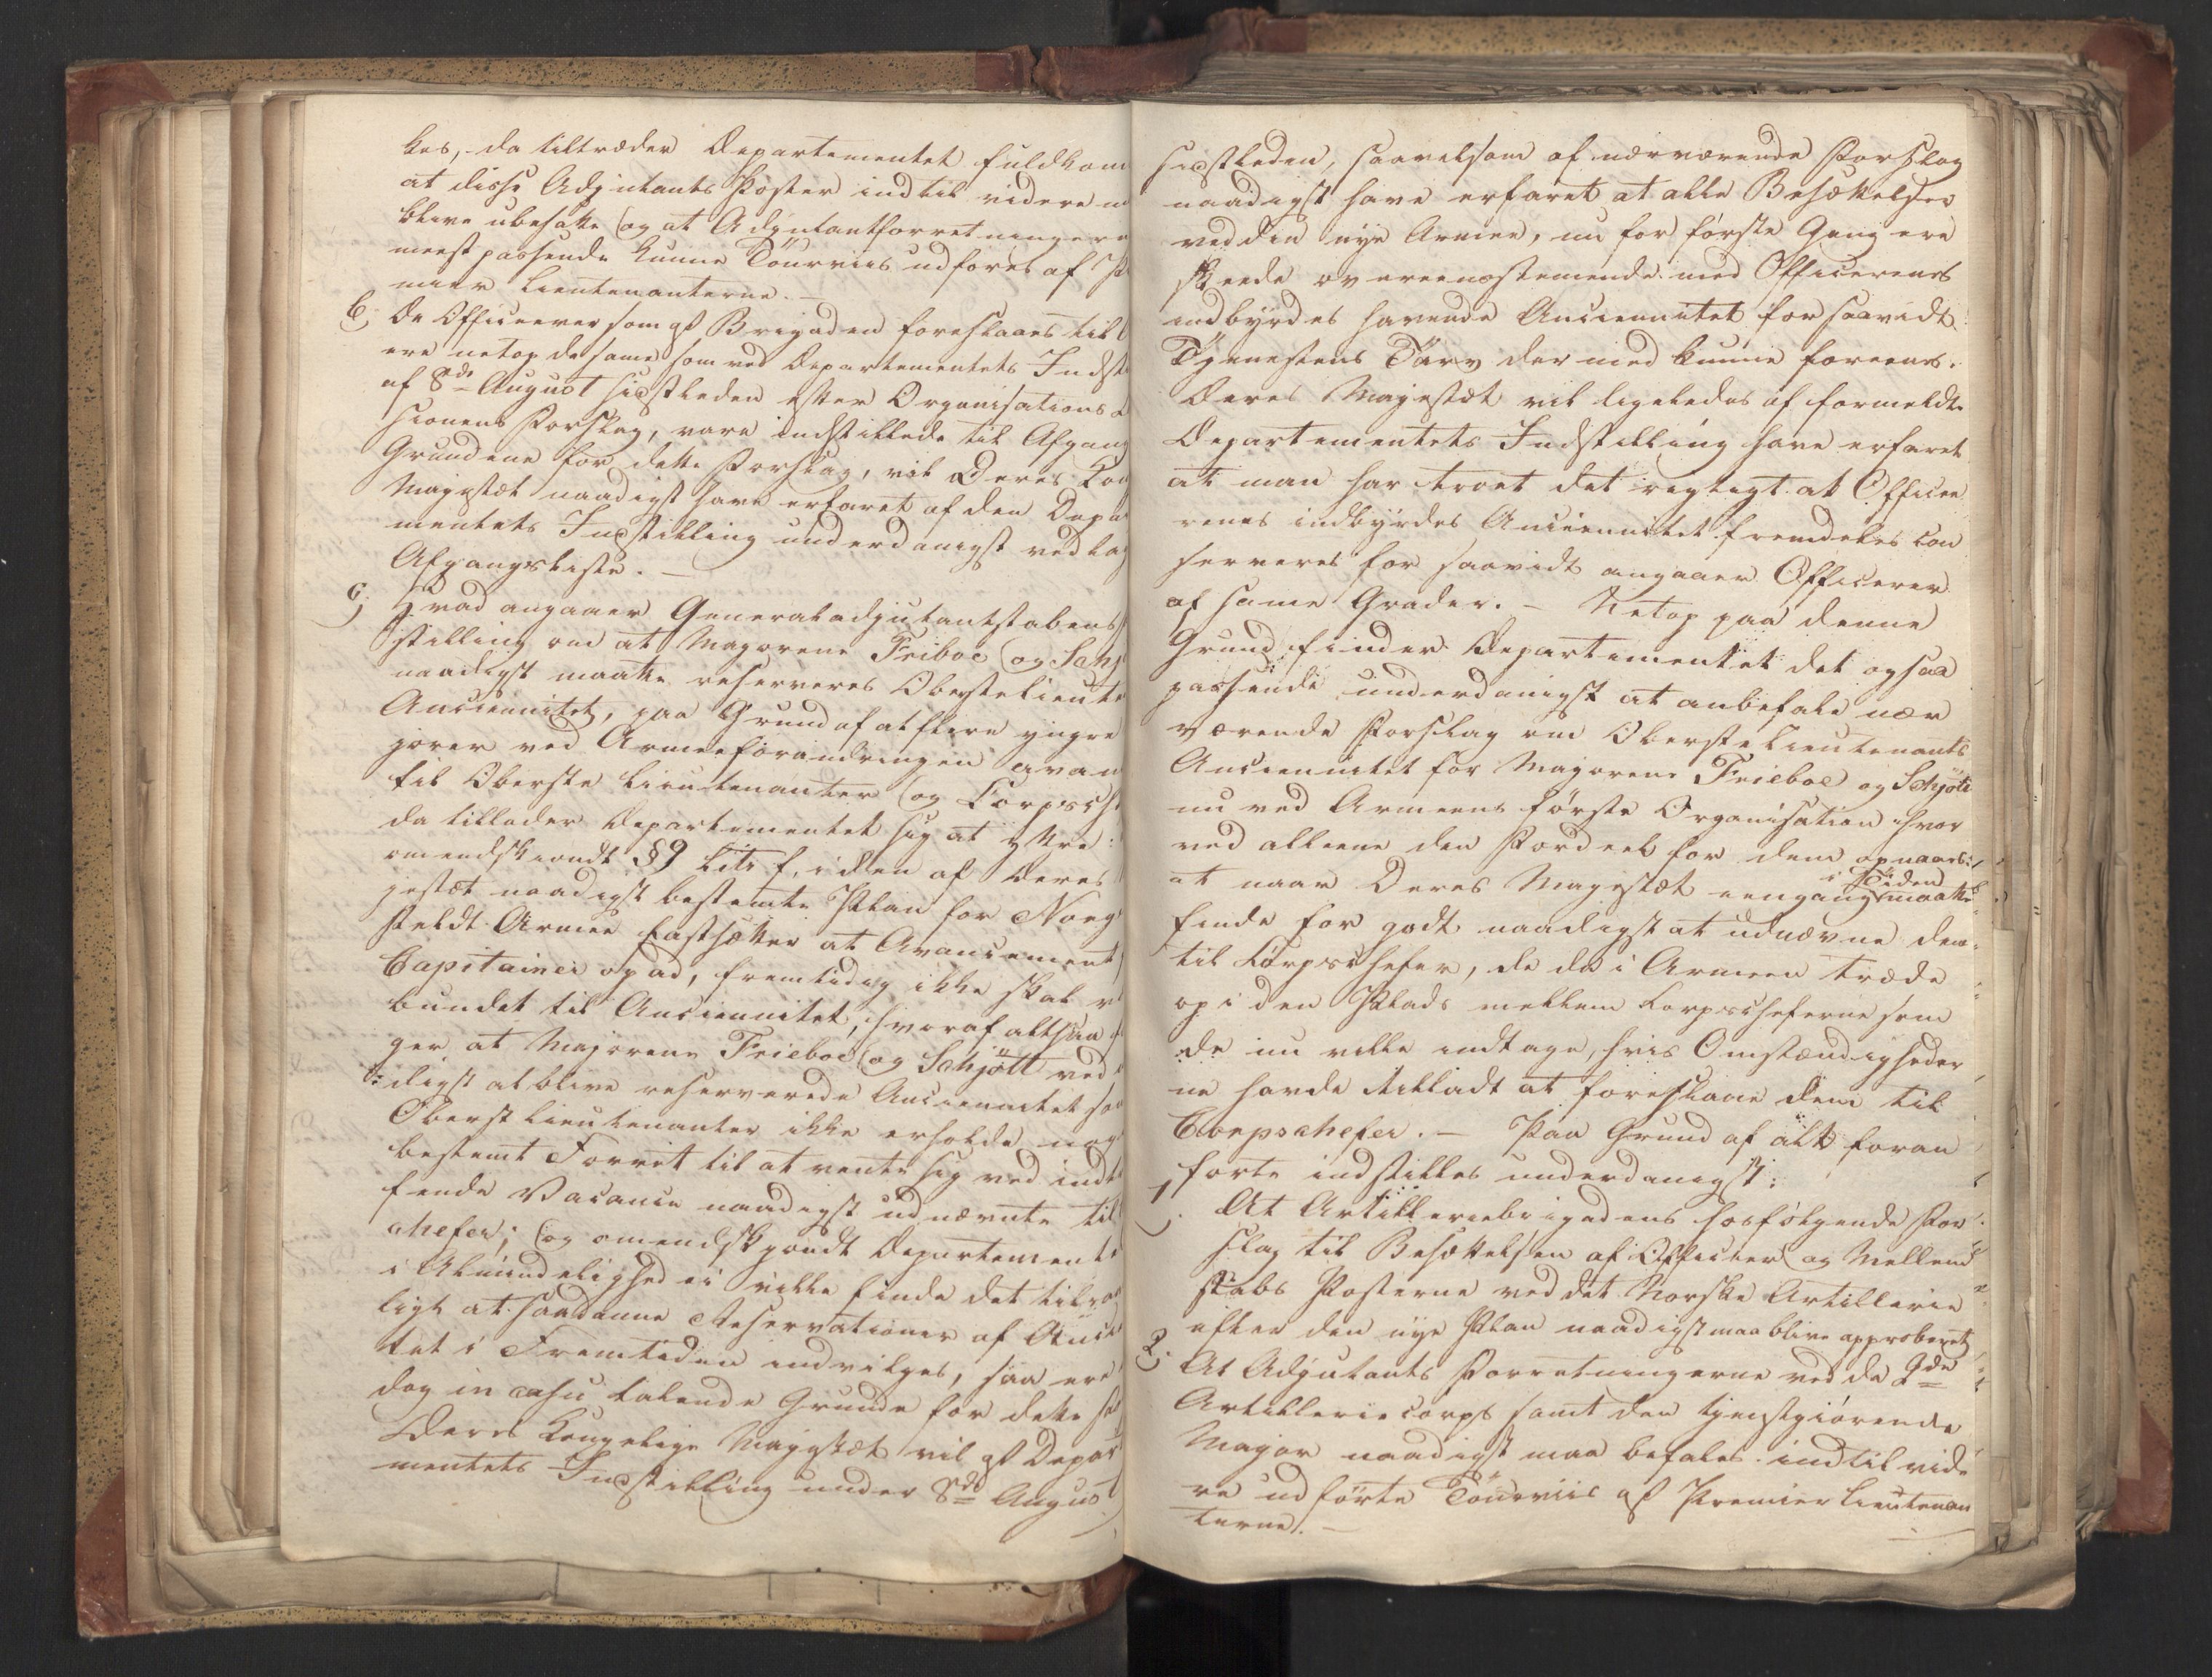 kes, da tiltræder Departementet fuldkom
at disse Adjutants Poster indtil videre m
blive ubesatte og at Adjutantforretningern
meest passende kunne Tourviis udføres af P
mier Lieutenanterne. –
b, De Officerer som af Brigaden foreslaaes til
ere netop de samme som ved Departementets Indst
af 8de August sidstleden efter Organisations
sionens Forslag, vare indstillede til Afgang
Grundene for dette Forslag, vil Deres Kon
Majestæt naadigst have erfaret af den Depar
mentets Indstilling underdanigst vedlag
Afgangsliste. –
c, Hvad angaaer Generaladjutantstabens
stilling om at Majorene Frieboe og Schj
naadigst maatte reserveres Oberstelieute
Anciennitet, paa Grund af at flere yngre
jorer ved Armeeforandringen avan
til Oberste Lieutenanter og Corpsch
da tillader Departementet sig at yttre:
omendskiøndt §9 Litr f, i den af Deres
jestæt naadigst bestemte Plan for Norg
staldt Armee fastsætter at Avancement
Capitainer opad, fremtidig ikke skal v
bundet til Anciennitet, hvoraf altsaa
ger at Majorene Frieboe og Schjøtt ved
digst at blive reserverede Anciennitet so
Oberst Lieutenanter ikke erholde nog
bestemt Forret til at vente sig ved indt
fende Vacance naadigst udnævnte til
chefer; og omendskjøndt Departemente
i Almindelighed ei vilde finde det tilra
ligt at saadanne Reservationer af Anci
tet i Fremtiden indvilges, saa ere
dog in casu talende Grunde for dette
Deres Kongelige Majestæt vil af Depar
mentets Indstilling under 8de August
sidstleden, saavelsom af nærværende Forslag
naadigst have erfaret at alle Besættelser
ved den nye Armee, nu for første Gang ere
skeede overeensstemmende med Officerenes
indbyrdes havende Anciennitet forsaavidt
Tjenestens Tarv dermed kunne forenes.
Deres Majestæt vil ligeledes af formeldte
Departementets Indstilling have erfaret
at man har troet det rigtigt at Office
renes indbyrdes Anciennitet fremdeles con
serveres for saavidt angaaer Officerer
af samme Grader. – Netop paa denne
Grund finder Departementet det ogsaa
passende underdanigst at anbefale nær
værende Forslag om Oberste Lieutenants
Anciennitet for Majorene Frieboe og Schjøtt
nu ved Armeens første Organisation hvor
ved alleene den Fordeel for dem opnaaes:
at naar Deres Majestæt eengang i Tiden maatte
finde for godt naadigst at udnævne dem
til Corpschefer, de da i Armeen træde
op i den Plads mellem Corpscheferne som
de nu ville indtage, hvis Omstændigheder
ne havde tilladt at foreslaae dem til
Corpschefer. – Paa Grund af alt foran
førte indstilles underdanigst:
1, At Artilleriebrigadens hosfølgende For
slag til Besættelsen af Officier og Mellem
stabs Posterne ved det Norske Artillerie
efter den nye Plan naadigst maa blive approberet
2, At Adjutants Forretningerne ved de 2de
Artillerie corps samt den tjenstgiørende
Major naadigst maa befales indtil vide
re udførte Tourviis af Premier Lieutenan
terne. –